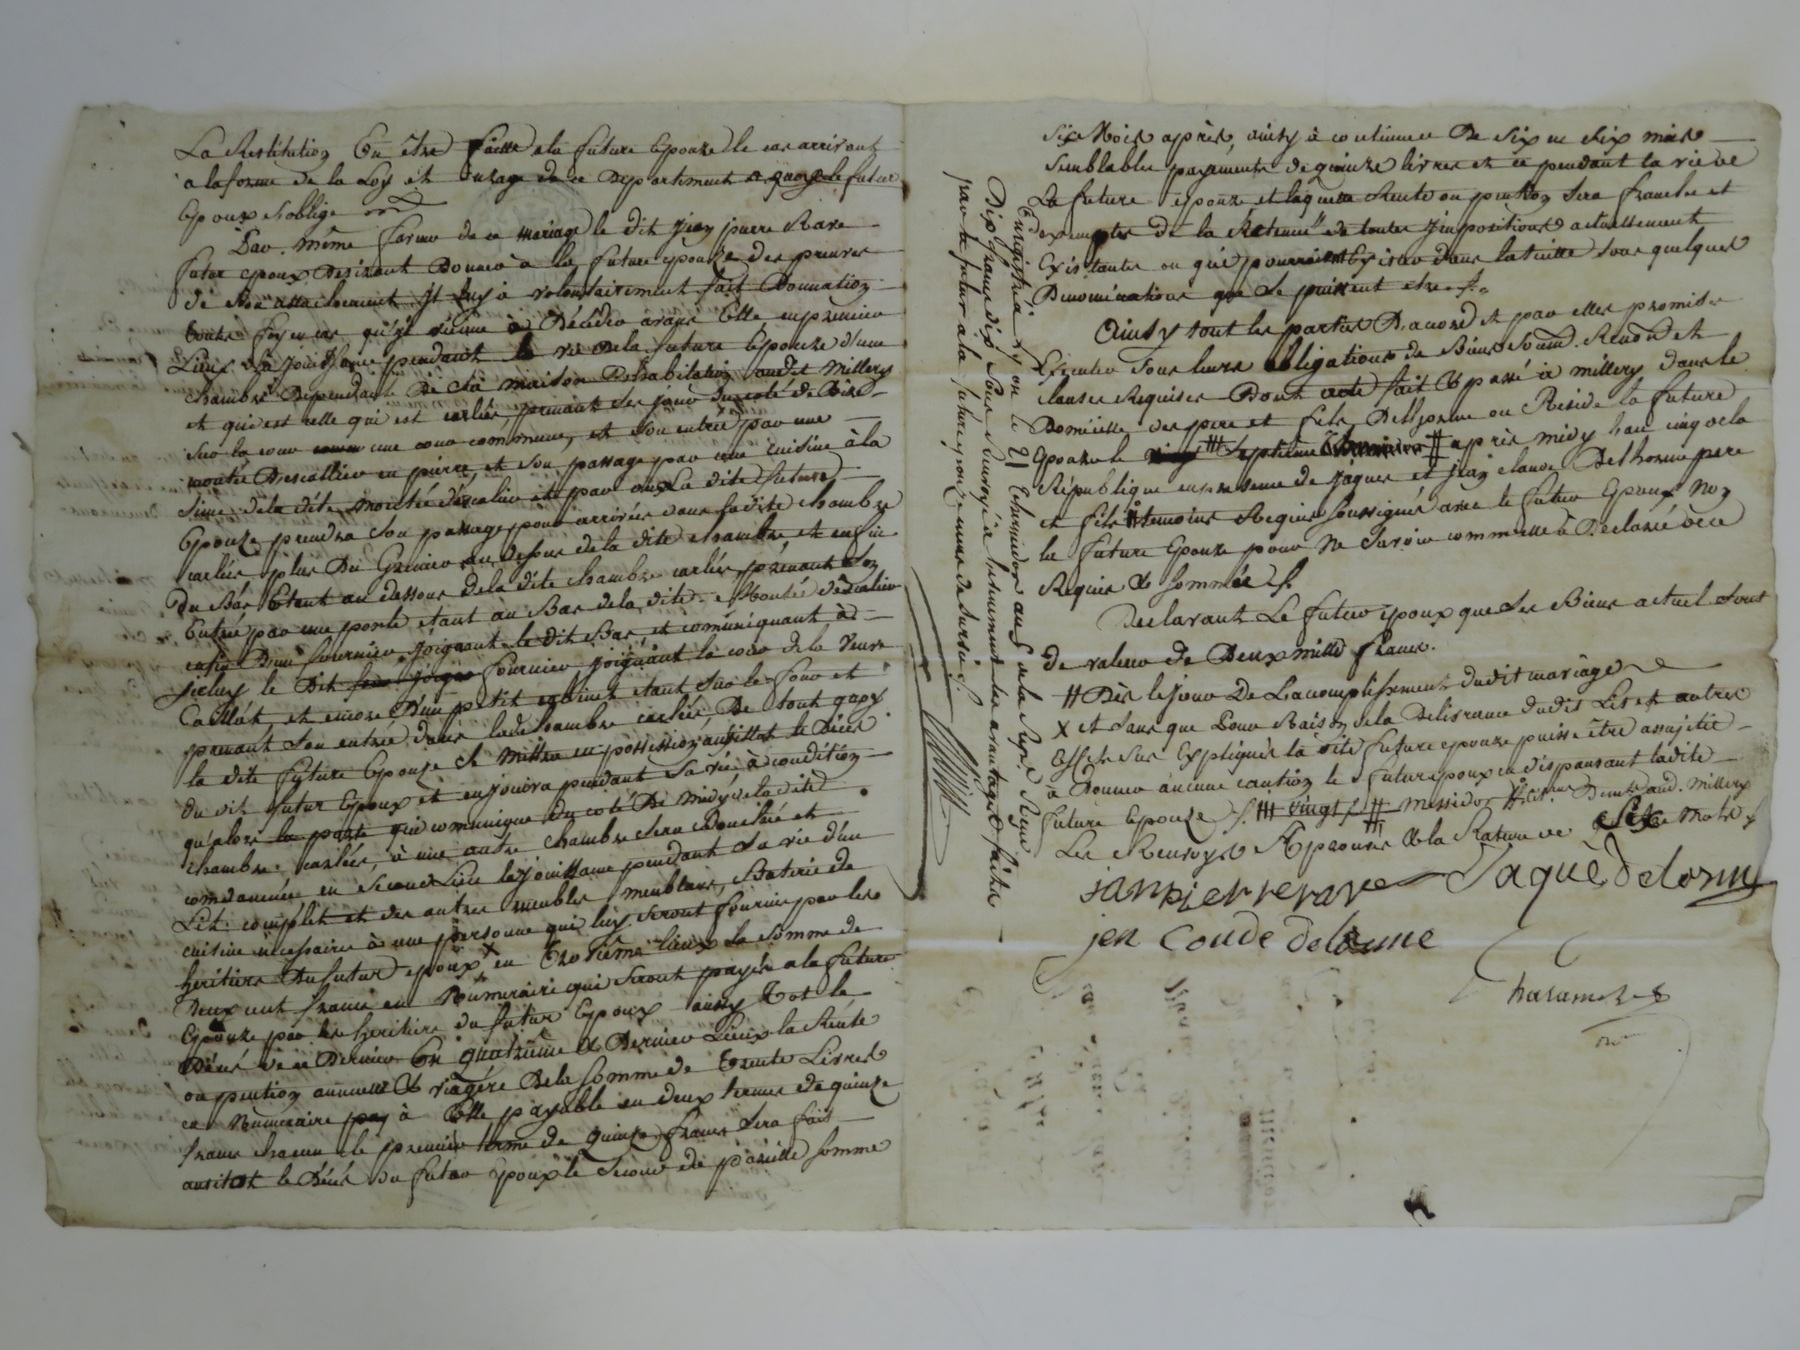 La Restitution En être faitte ala future Epouze le cas arrivant
a la forme de la Loy et usage de ce Departiment a quoy le futur
Epoux s'oblige
Par même faveur de ce mariage le dit jean pierre Rave
futur epoux desirant Donner à la future epouze des preuves
de son attachement Il luy à volontairement fait Donnation
qu'il vienne à Décéder avant Elle en premier
Lieux de la jouissance pendant la vie de la future Epouze d'une
chambre Dependante De sa maison D'habitation audit Millery
et qui est celle qui est carlée, prenant ses jours du coté de Bize
sur la cour une cour commune, et son entrée par une
montée Descallier en pierre et son passage par une cuisine à la
sime de la dite montée d'escalier et par ou La dite future
Epouze prendra son passage pour arriver dans ladite chambre
carlée, plus Du Grenier au dessus de la dite chambre, et enfin
Du Bas Etant au dessous de la dite chambre carlée, prenant son
Entrée par une porte etant au Bas de la dite Montée d'Escalier
Dun fournier joignant le dit Bas, et comuniquant à
jceluy le Dit fournier joignant la cour de la Veuve
et encore D'un petit cabinet etant sur le four et
prenant son entrée dans lade chambre carlée, De tout quoy
la dite future Epouze se mettra en possession aussitot le Décès
du dit futur Epoux et en jouira pendant sa vie à condition
qu'alors la porte qui comunique du coté De midy de la dite
chambre carlée, à une autre chambre sera Bouchée et
condamnée, en second Lieu la jouissance pendant sa vie d'un
Lit complet et des autres meubles meublans, Baterie de
cuisine necessaire à une personne qui luy seront fournis par les
heritiers du futur epoux x en Troisième lieux La somme de
Deux cent francs en Numeraire qui seront payés a la future
Epouze par les heritiers du futur Epoux aussy Tot le
Décès de ce Dernier En quatrième & Dernier Lieux la Rente
ou pention annuelle & viagére De la somme de Trente Livres
en Numeraire payable en deux termes de quinze
francs chacun le premier terme de quinze francs sera fait
aussitot le Décès du futur epoux le second de pareille somme
six Mois après, ainsy à continuer De six en six mois
semblables payements de quinze livres et ce pendant la vie de
La future epouze et laquelle Rente ou pention sera franche et
exempte de la Retenue de toutes Jmpositions actuellement
Existantes ou qui pourraient Exister dans la suitte sous quelques
Denominations que se puissent etre
Ainsy tout les parties D'acord et par elles promis
Exécuter sous leurs obligations de Biens Renond et
clauses Requises Dont acte fait & passé à millery dans le
Domicille des pere et fils Delhorme ou Reside la future
Epouze le Septieme apprès midy L'an cinq de la
République en presence de jaques et jean claude Delhorme pere
et fils temoins Requis soussignés avec le futur Epoux Non
la future Epouze pour Ne savoir comme elle à Declaré de ce
Requise & sommée
Declarant Le futur epoux que ses Biens actuel sont
de valeur de Deux mille francs.
# Dès le jour De Lacomplissement dudit mariage
x et sans que pour Raison de la Delivrance dudit Lit et autres
Effets sus Expliqués la dite future epouze puisse être assujetie
à Donner aucune caution le futur epoux en dispansant ladite
future Epouze vingt messidor Millery
Les Renvoys Approuvés & la Rature de Mots
janpierrerave Jaque Delorme
jen Coude delorme
Enregistré a le 21 Thermidor an 5 de la Repe Reçu
Dix francs dix sous
par le futur a la future epouze